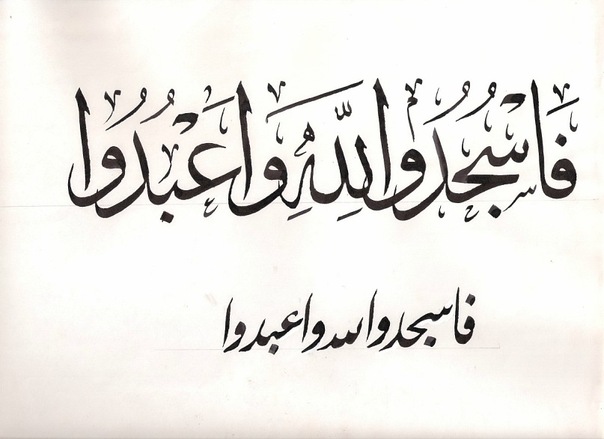 فَاسْجُدُوا لِلَّهِ وَاعْبُدُوا
فاسجدوا لله واعبدوا